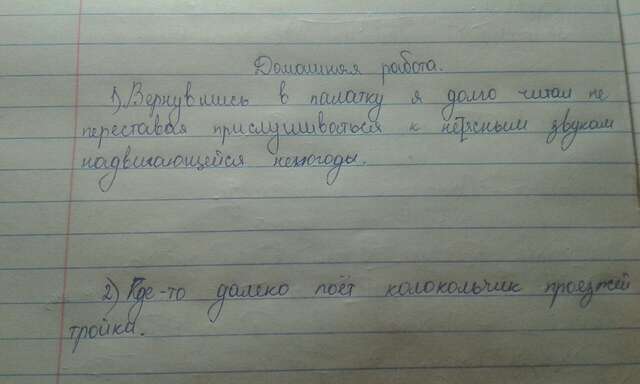 Домашняя работа.
1) Вернувшись в палатку я долго читал не
переставая прислушиваться к не[ясным звукам
надвигающейся непогоды.
2) Где-то далеко поёт колокольчик проезжей
тройки.